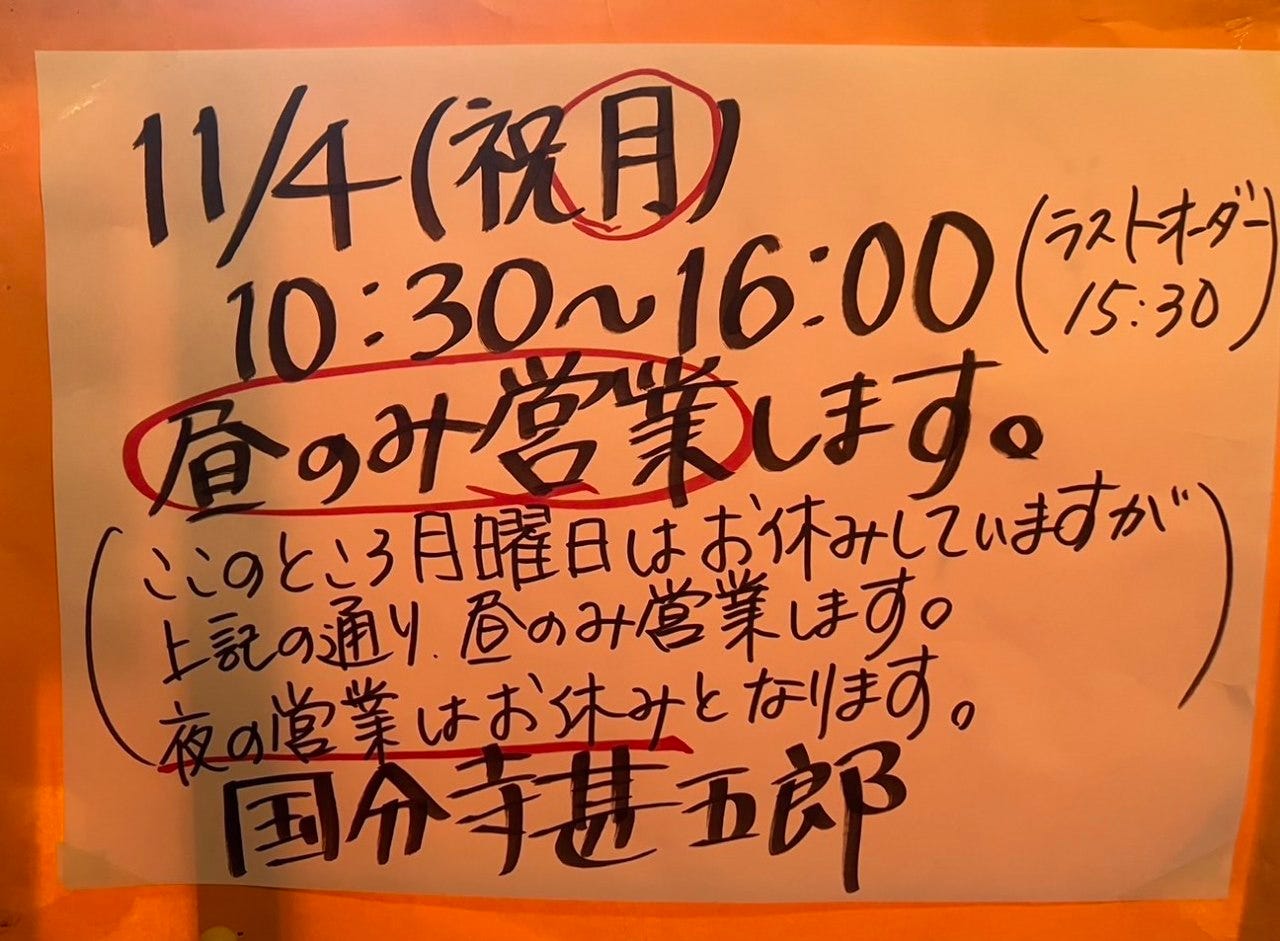 11/4(祝月)
10:30~16:00(ラストオーダー 15:30)
昼のみ営業します。
(ここのところ月曜日はお休みしていますが
上記の通り、昼のみ営業します。
夜の営業はお休みとなります。)
国分寺甚五郎